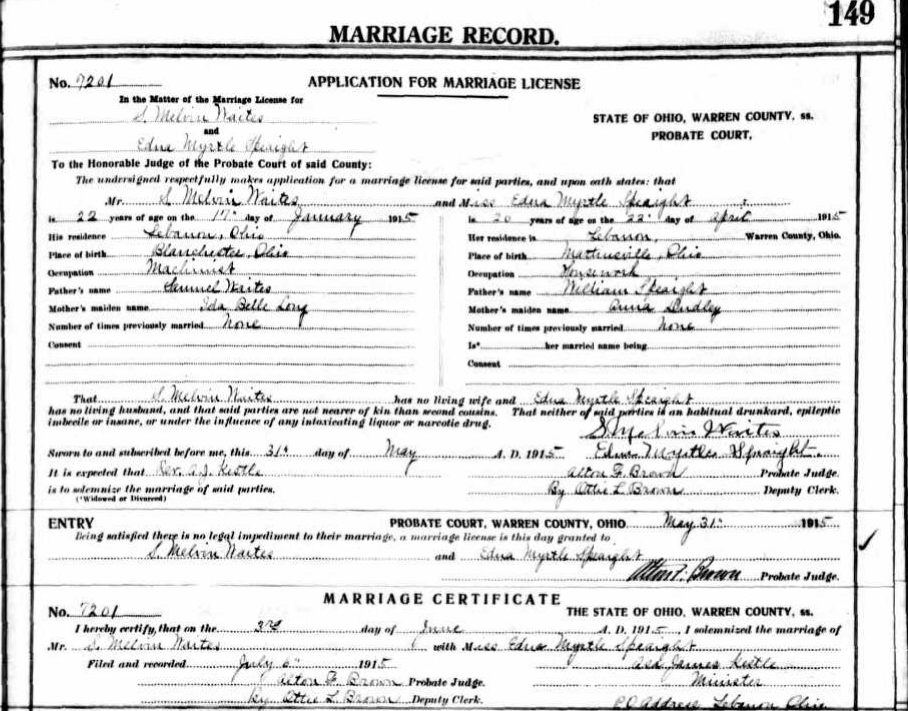 149
MARRIAGE RECORD.
No. 7201
APPLICATION FOR MARRIAGE LICENSE
In the Matter of the Marriage License for
S. Melvin Waites
and
Edna Myrtle Speaight
STATE OF OHIO, WARREN COUNTY, ss.
PROBATE COURT,
To the Honorable Judge of the Probate Court of said County:
The undersigned respectfully makes application for a marriage license for said parties, and upon oath states: that
Mr. S. Melvin Waites and Miss Edna Myrtle Speaight
is 22 years of age on the 17" day of January 1915
His residence Lebanon, Ohio
Place of birth Blanchester, Ohio
Occupation Machinist
Father's name Samuel Waites
Mother's maiden name Ida Belle Long
Number of times previously married None
Consent
is 20 years of age on the 22" day of April 1915
Her residence is Lebanon, Warren County, Ohio.
Place of birth Ohio
Occupation Housework
Father's name William Speaight
Mother's maiden name Anna Lindley
Number of times previously married None
Is* her married name being
Consent
That S. Melvin Waites has no living wife and Edna Myrtle Speaight
has no living husband, and that said parties are not nearer of kin than second cousins. That neither of said parties is an habitual drunkard, epileptic
imbecile or insane, or under the influence of any intoxicating liquor or narcotic drug.
S Melvin Waites
Sworn to and subscribed before me, this 31st day of May A. D. 1915
Edna Myrtle Speaight.
It is expected that Rev. A. J. Kestle
Alton F. Brown Probate Judge.
is to solemnize the marriage of said parties.
By Ottie L. Brown Deputy Clerk.
(*Widowed or Divorced)
ENTRY
PROBATE COURT, WARREN COUNTY, OHIO May 31" 1915
Being satisfied there is no legal impediment to their marriage, a marriage license is this day granted to
S. Melvin Waites and Edna Myrtle Speaight
Alton F. Brown Probate Judge.
MARRIAGE CERTIFICATE
No. 7201
THE STATE OF OHIO, WARREN COUNTY, ss.
I hereby certify, that on the 3rd day of June A. D. 1915, I solemnized the marriage of
Mr. S. Melvin Waites with Miss Edna Myrtle Speaight
Filed and recorded July 6" 1915
James Kestle
Alton F. Brown Probate Judge.
Minister
By Ottie L. Brown Deputy Clerk.
P.O. Address Lebanon Ohio